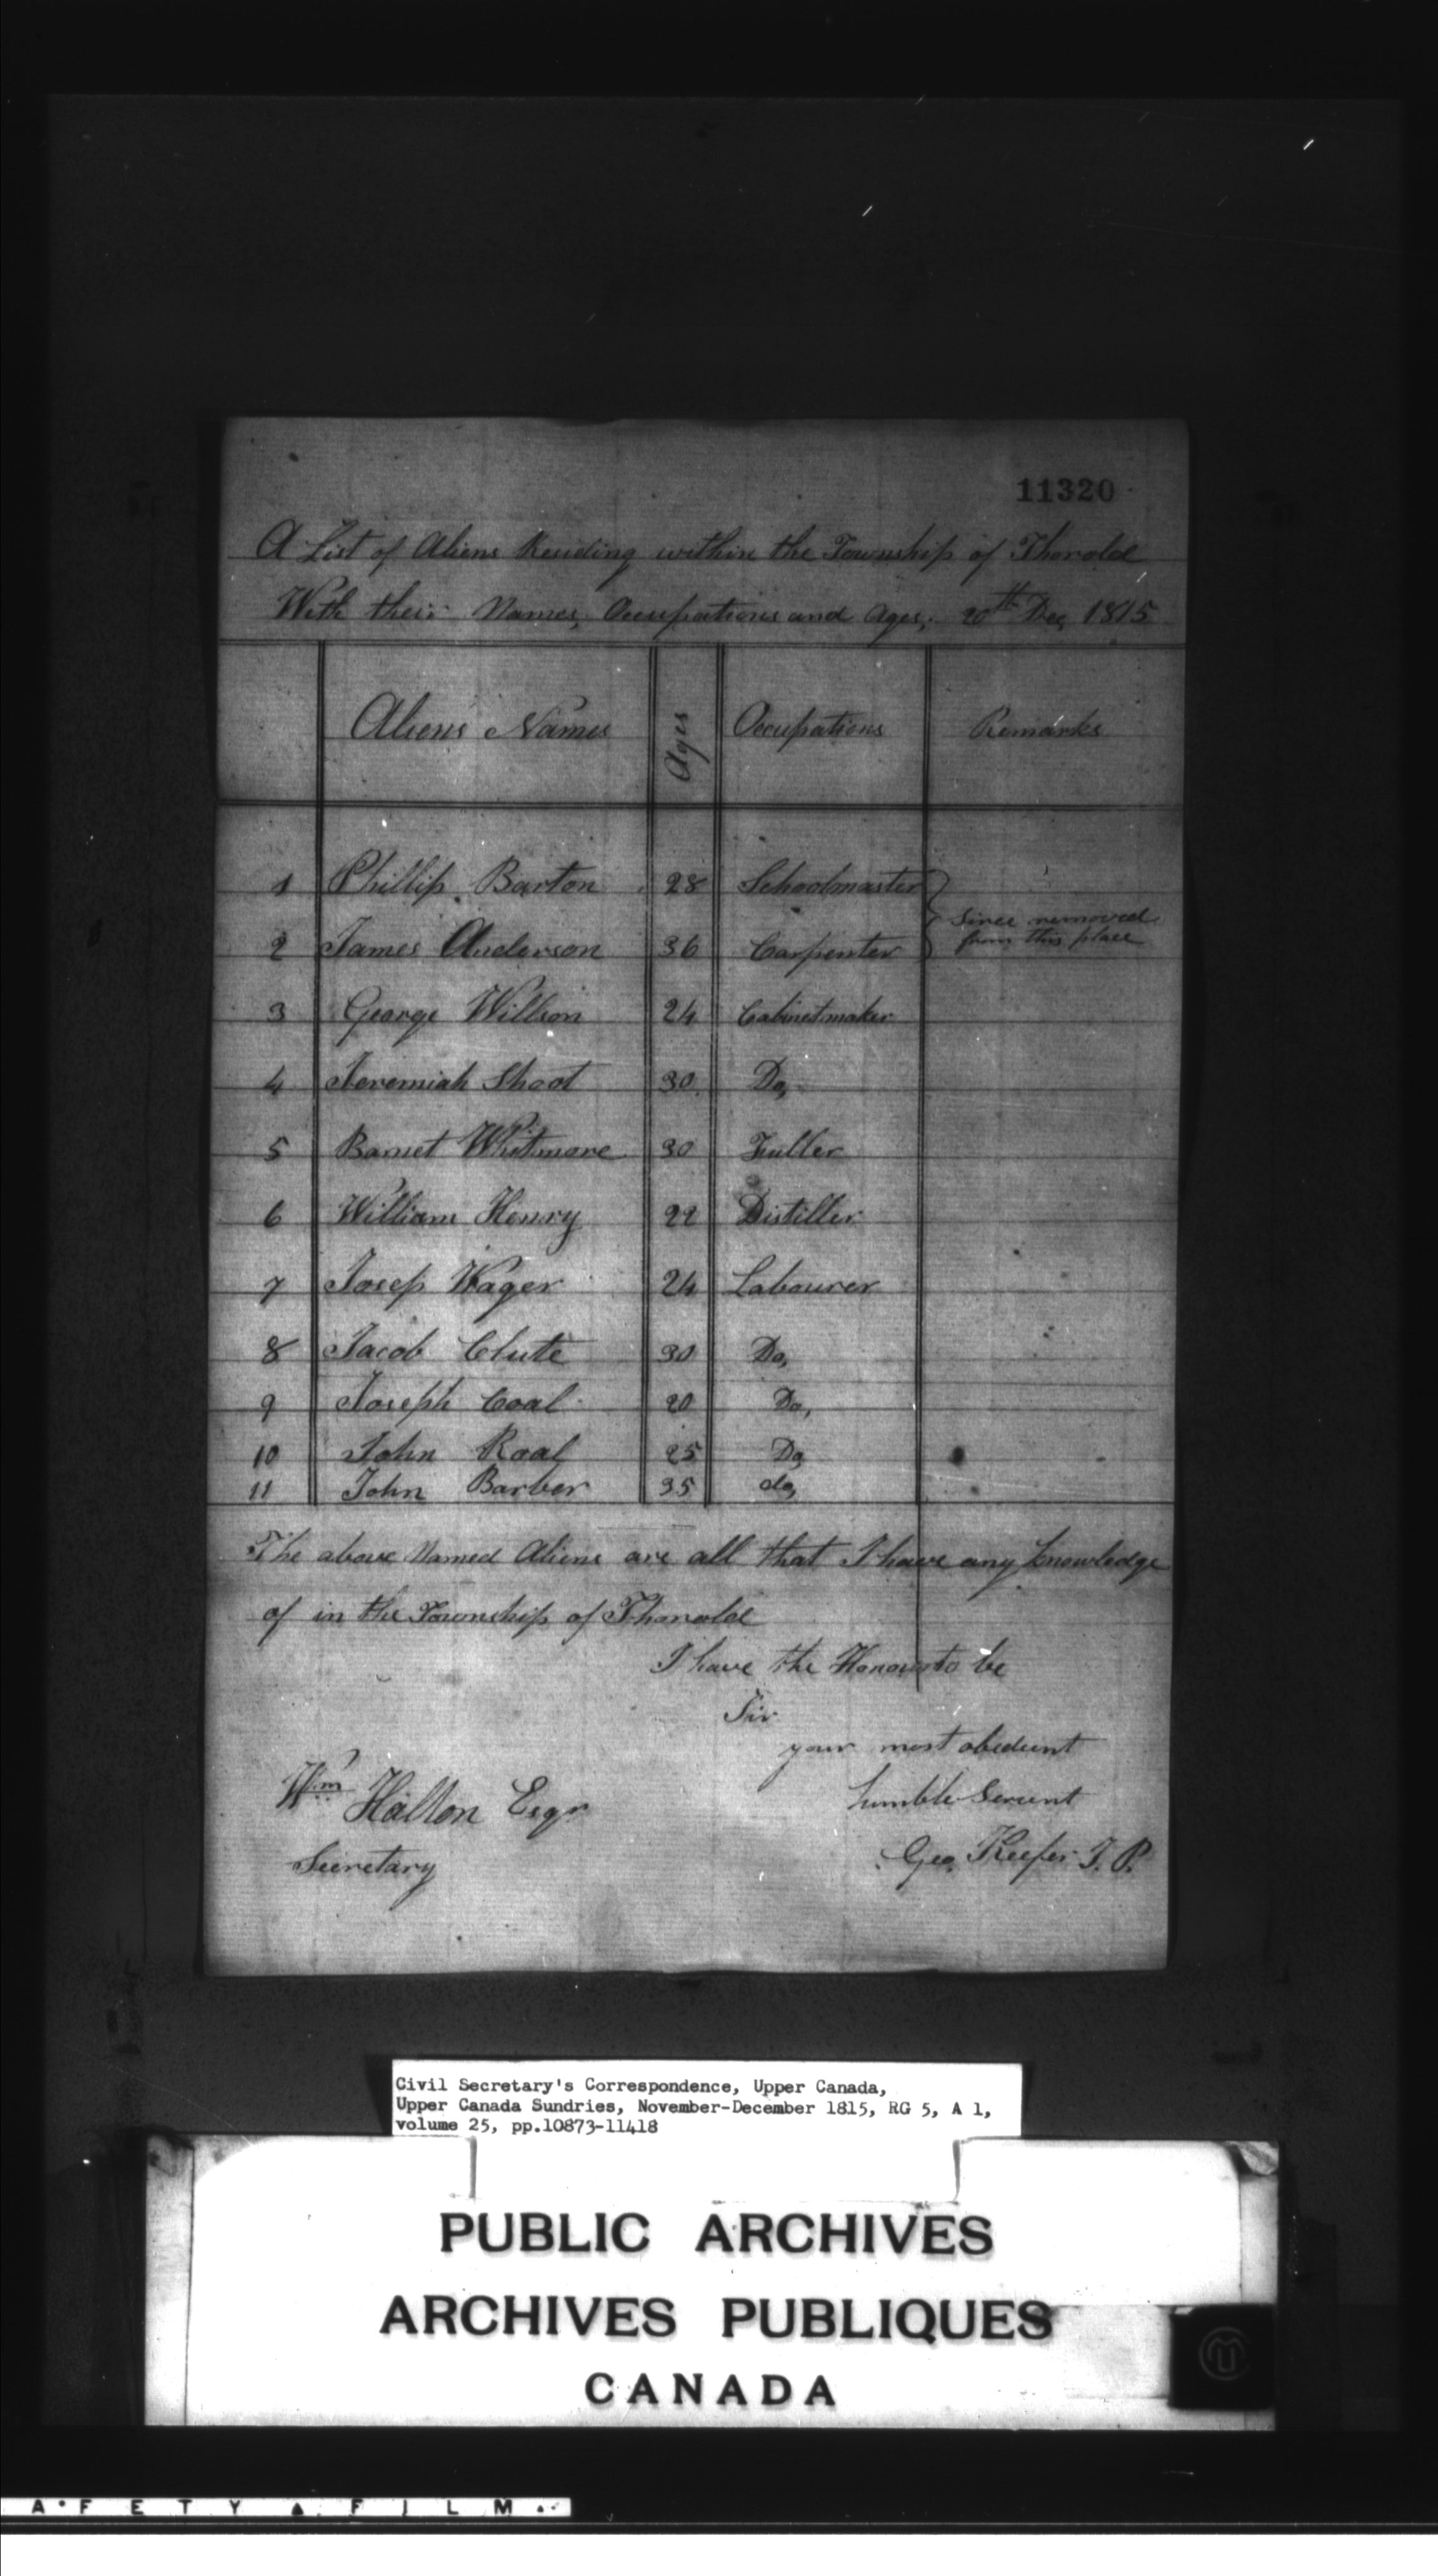 11320
A List of Aliens Residing within the Township of Thorold
With their Names, Occupations and Ages, 20th Dec 1815
Aliens Names Ages Occupations Remarks
1 Phillip Barton 28 Schoolmaster
since removed
from this place
2 James Anderson 36 Carpenter
3 George Willson 24 Cabinetmaker
4 Jeremiah Shoot 30 Do,
5 Barnet Whitmore 30 Fuller
6 William Henry 22 Distiller
7 Josep Wager 24 Labourer
8 Jacob Clute 30 Do,
9 Joseph Coal 20 Do,
10 John Roal 25 Do,
11 John Barber 35 do,
The above Named Aliens are all that I have any knowledge
of in the Township of Thorold
I have the Honour to be
Sir
your most obedient
humble Servent
Wm Halton Esqr
Geo. Keefer J. P.
Secretary
Civil Secretary's Correspondence, Upper Canada,
Upper Canada Sundries, November-December 1815, RG 5, A 1,
volume 25, pp.10873-11418
PUBLIC ARCHIVES
ARCHIVES PUBLIQUES
CANADA
AFETY FILM